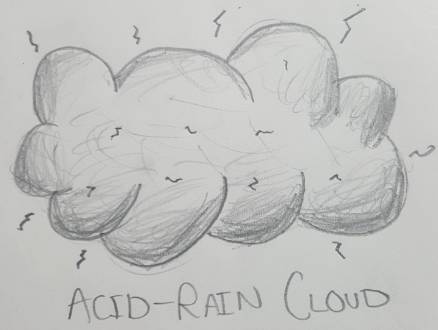 ACID-RAIN CLOUD